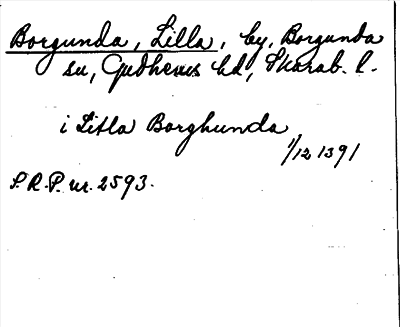 Borgunda, Lilla, by, Borgunda
sn, Gudhems hd, Skarab. l.
i Litla Borghunda
1/12 1391
S.R.P. nr. 2593.